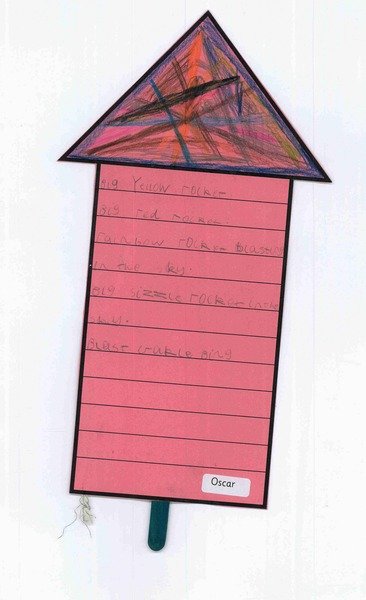 Big Yellow rocket
Big red rocket.
rainbow rocket blasting
in the sky.
Big sizzle rocket in the
sky.
Blast crackle Bing
Oscar